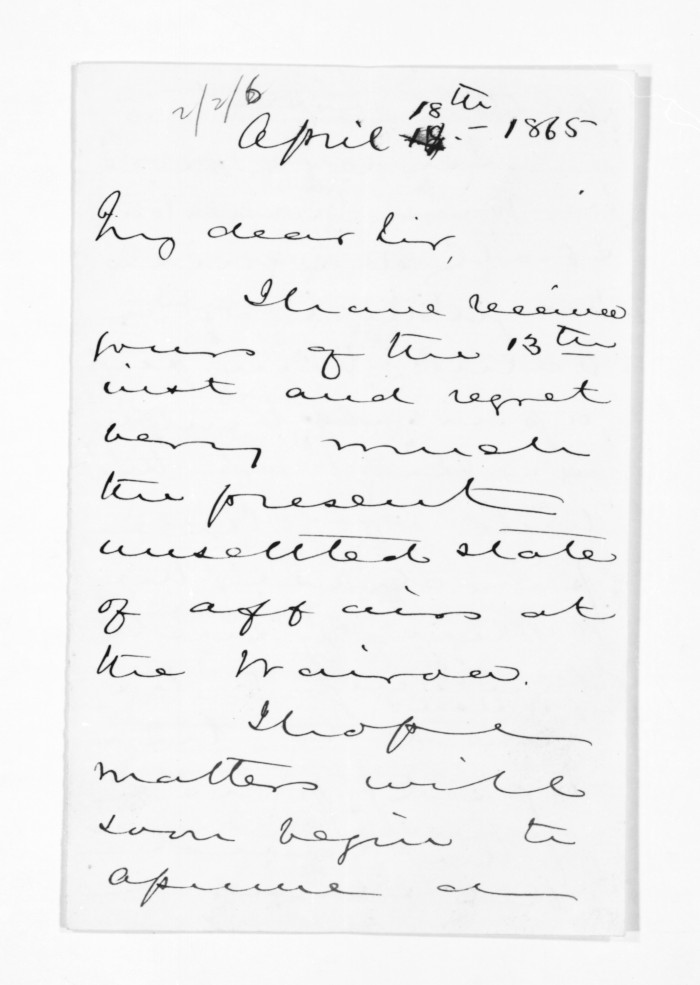 2/2/6
April 18th - 1865
My dear Sir,
I have received
yours of the 13th
inst and regret
very much
the present
unsettled state
of affairs at
the Wairoa.
I hope
matters will
soon begin to
assume a